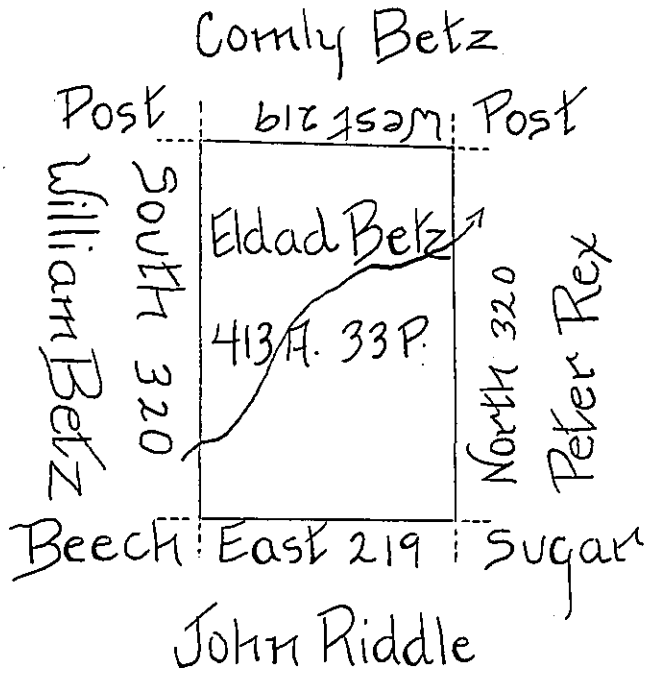 Comly Betz
Post
West 219
Post
William Betz
South 320
Eldad Betz
413 A. 33 P.
North 320
Peter Rex
Beech
East 219
Sugar
John Riddle